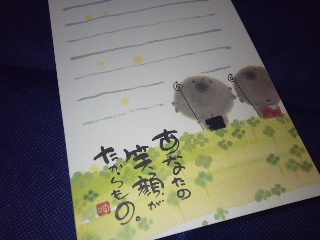 あなたの
笑顔が
たからもの。